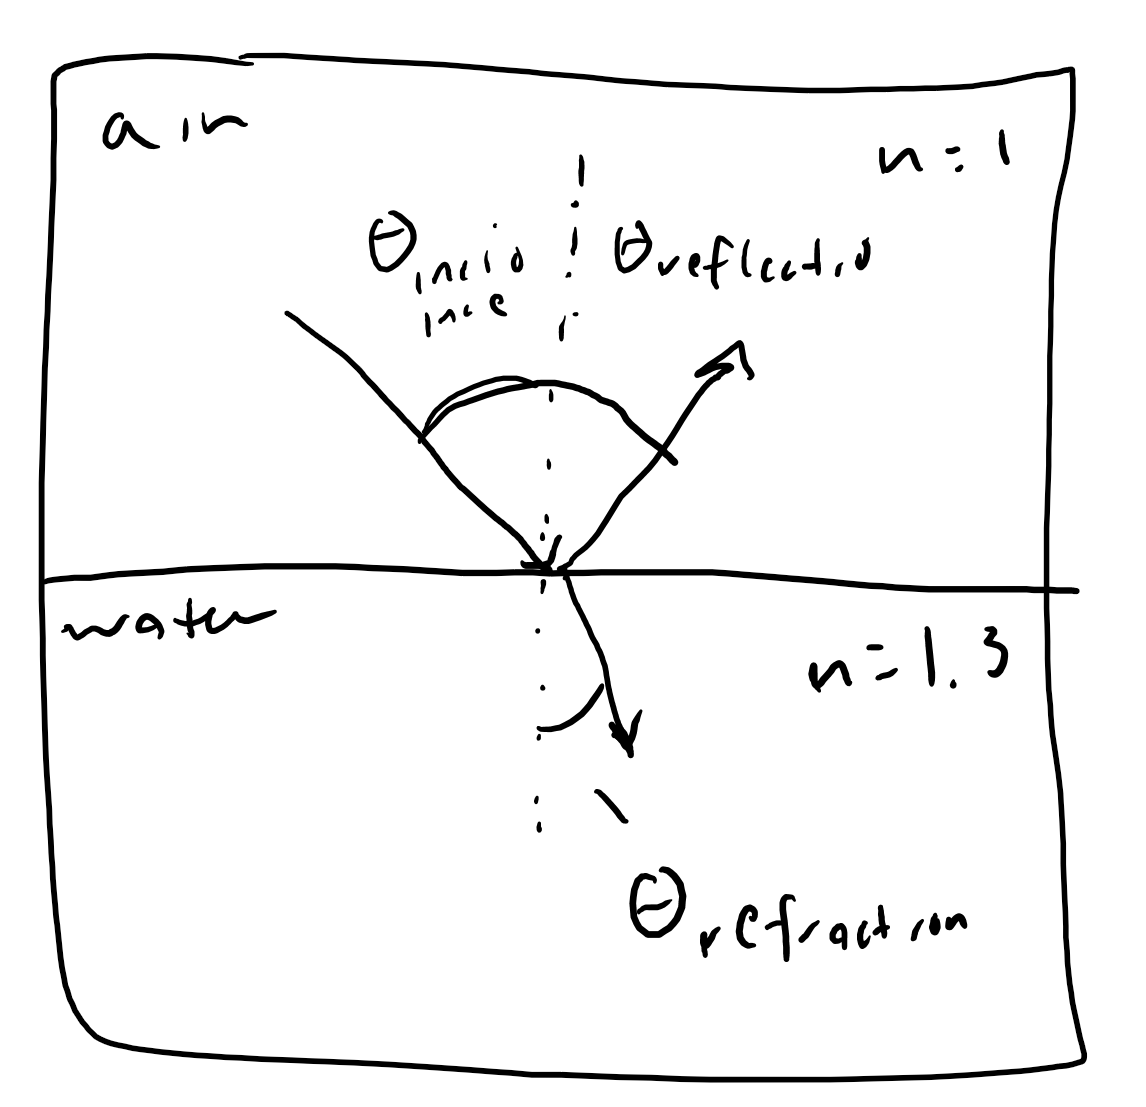 air
n = 1
θincid
ince
θreflectid
water
n = 1.3
θrefraction